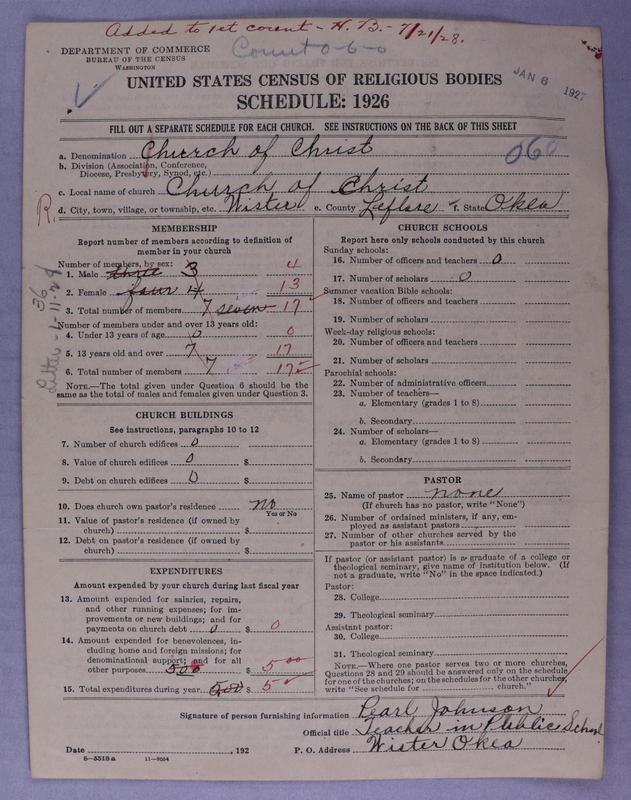 Added to 1st count - H. B. - 7/21/28.
Count 0-6-0
DEPARTMENT OF COMMERCE
BUREAU OF THE CENSUS
WASHINGTON
JAN 6 1927
UNITED STATES CENSUS OF RELIGIOUS BODIES
SCHEDULE: 1926
FILL OUT A SEPARATE SCHEDULE FOR EACH CHURCH. SEE INSTRUCTIONS ON THE BACK OF THIS SHEET
060
a. Denomination Church of Christ
b. Division (Association, Conference,
Diocese, Presbytery, Synod, etc.)
c. Local name of church Church of Christ
R.
d. City, town, village, or township, etc. Wister e. County Leflore f. State Okla
MEMBERSHIP
Report number of members according to definition of
member in your church
Number of members, by sex:
1. Male three 3 4
2. Female four 4 13
3. Total number of members 7 seven 17
Number of members under and over 13 years old:
4. Under 13 years of age 0 0
5. 13 years old and over 7 17
6. Total number of members 7 17
NOTE.—The total given under Question 6 should be the
same as the total of males and females given under Question 3.
CHURCH BUILDINGS
See instructions, paragraphs 10 to 12
7. Number of church edifices 0
8. Value of church edifices 0 $
9. Debt on church edifices 0 $
10. Does church own pastor's residence no
Yes or No
11. Value of pastor's residence (if owned by
church) $
12. Debt on pastor's residence (if owned by
church) $
EXPENDITURES
Amount expended by your church during last fiscal year
13. Amount expended for salaries, repairs,
and other running expenses; for im-
provements or new buildings; and for
payments on church debt 0 $ 0
14. Amount expended for benevolences, in-
cluding home and foreign missions; for
denominational support; and for all
other purposes 500 $ 5 00
15. Total expenditures during year 5.00 $ 5
CHURCH SCHOOLS
Report here only schools conducted by this church
Sunday schools:
16. Number of officers and teachers 0
17. Number of scholars 0
Summer vacation Bible schools:
18. Number of officers and teachers
19. Number of scholars
Week-day religious schools:
20. Number of officers and teachers
21. Number of scholars
Parochial schools:
22. Number of administrative officers
23. Number of teachers—
a. Elementary (grades 1 to 8)
b. Secondary
24. Number of scholars—
a. Elementary (grades 1 to 8)
b. Secondary
PASTOR
25. Name of pastor none
(If church has no pastor, write "None")
26. Number of ordained ministers, if any, em-
ployed as assistant pastors
27. Number of other churches served by the
pastor or his assistants
If pastor (or assistant pastor) is a graduate of a college or
theological seminary, give name of institution below. (If
not a graduate, write "No" in the space indicated.)
Pastor:
28. College
29. Theological seminary
Assistant pastor:
30. College
31. Theological seminary
NOTE.—Where one pastor serves two or more churches,
Questions 28 and 29 should be answered only on the schedule
for one of the churches; on the schedules for the other churches,
write "See schedule for church."
Signature of person furnishing information Pearl Johnson
Official title Teacher in Public School
Date , 192 P. O. Address Wister Okla
8-5518a 11-9054